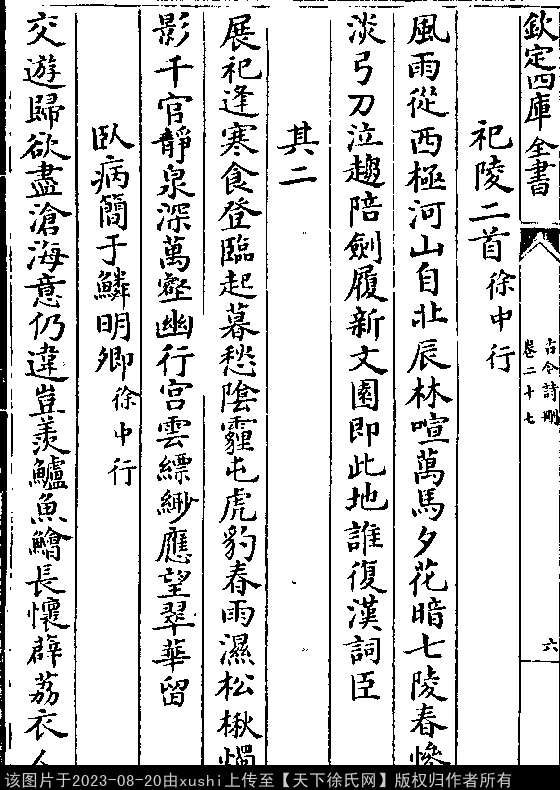 欽定四庫全書
古今詩刪
卷二十七
六
祀陵二首 徐中行
風雨從西極河山自北辰林喧萬馬夕花暗七陵春慘
淡弓刀泣趨陪劍履新文園即此地誰復漢詞臣
其二
展祀逢寒食登臨起暮愁陰霾屯虎豹春雨濕松楸燭
影千官靜泉深萬壑幽行宮雲縹緲應望翠華留
臥病簡于鱗明卿 徐中行
交遊歸欲盡滄海意仍違豈羨鱸魚鱠長懷薜荔衣
该图片于2023-08-20由xushi上传至【天下徐氏网】版权归作者所有